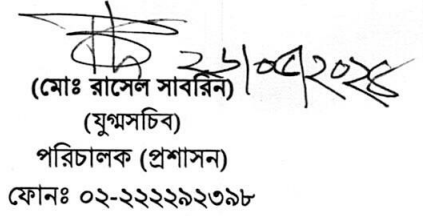 ২৬/০৫/২০২৪
(মোঃ রাসেল সাবরিন)
(যুগ্মসচিব)
পরিচালক (প্রশাসন)
ফোনঃ ০২-২২২২৯২৩৯৮